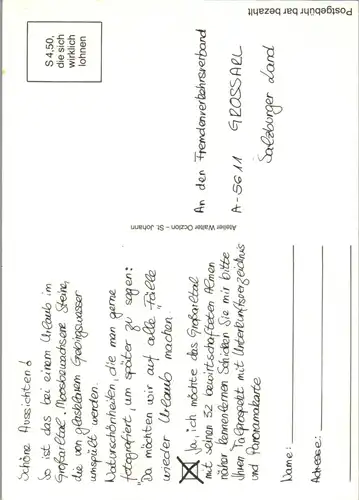 Schöne Aussichten!
So ist das bei einem Urlaub im
Großarltal: Moosbewachsene Steine,
die von glasklarem Gebirgswasser
umspült werden.
Naturschönheiten, die man gerne
fotografiert, um später zu sagen:
"Da möchten wir auf alle Fälle
wieder Urlaub machen."
Ja, ich möchte das Großarltal
mit seinen 52 bewirtschafteten Almen
näher kennenlernen. Schicken Sie mir bitte
Ihren Talprospekt mit Unterkunftsverzeichnis
und Panoramakarte
Name:
Adresse:
Atelier Walter Oczlon – St. Johann
Postgebühr bar bezahlt
S 4,50,
die sich
wirklich
lohnen
An den Fremdenverkehrsverband
A-5611 GROSSARL
Salzburger Land